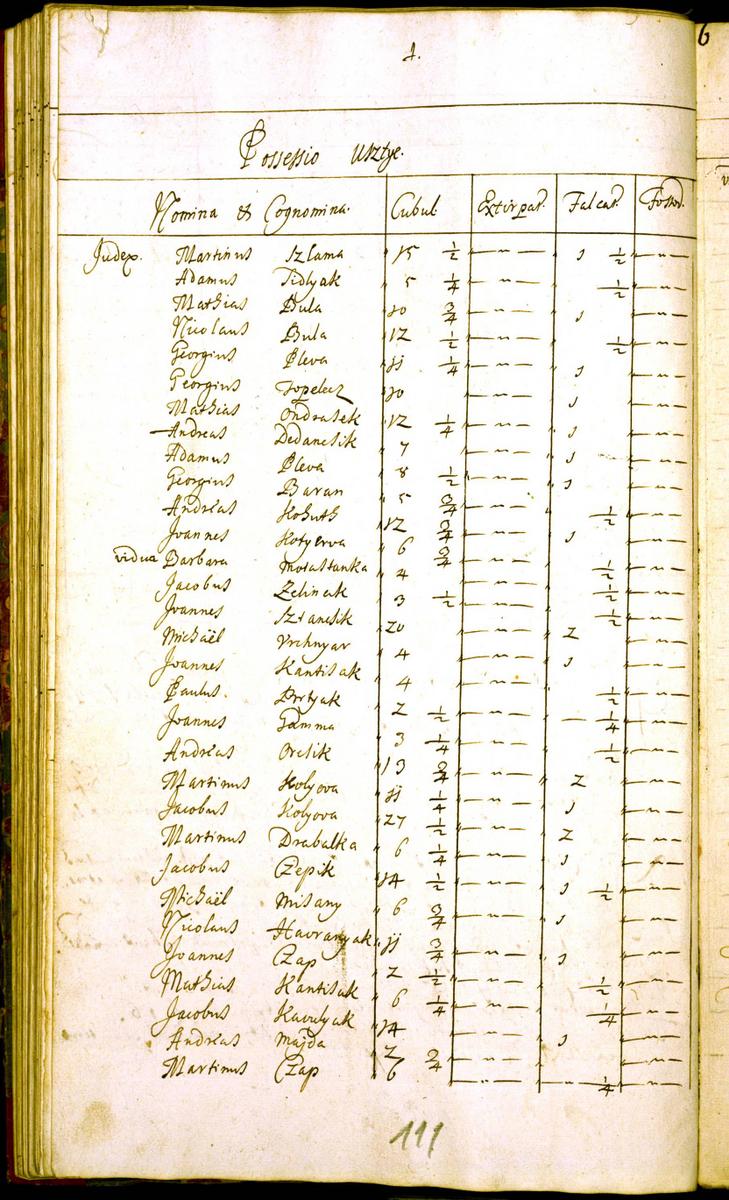 1.
6
Possessio Usztye.
Nomina et Cognomina. Cubul. Extirpat. Falcat. Fossor.
Judex. Martinus Szlama " 15 1/2 " — " — 1 1/2 — " —
Adamus Tidlyak " 5 1/4 — " — 1/2 — " —
Mathias Bula " 10 3/4 — " — 1 — " —
Nicolaus Bula " 12 1/2 — " — 1/2 — " —
Georgius Pleva " 11 1/4 — " — 1 — " —
Georgius Topelecz " 10 — " — 1 — " —
Mathias Ondrasek " 12 1/4 — " — 1 — " —
Andreas Dedanesik " 7 — " — 1 — " —
Adamus Pleva " 8 1/2 — " — 1 — " —
Georgius Baran " 5 3/4 — " — 1/2 — " —
Andreas Kohuth " 12 3/4 — " — 1 — " —
Joannes Kotyerva " 6 3/4 — " — 1/2 — " —
vidua Barbara " 4 — " — 1/2 — " —
Jacobus Zelinak " 3 1/2 — " — 1/2 — " —
Joannes " 20 — " — 2 — " —
Michaël Vrchnyar " 4 — " — 1 — " —
Joannes Kantisak " 4 — " — 1/2 — " —
Paulus Prtyak " 2 1/2 — " — — 1/4 — " —
Joannes Gamma " 3 1/4 — " — 1/2 — " —
Andreas Oresik " 13 3/4 — " — 2 — " —
Martinus Holyova " 11 1/4 — " — 1 — " —
Jacobus Kolyova " 27 1/2 — " — 2 — " —
Martinus Drabalka " 6 1/4 — " — 1 — " —
Jacobus Czepik " 14 1/2 — " — 1 1/2 — " —
Michaël Misany " 6 3/4 — " — 1 — " —
Nicolaus Havranyak " 11 3/4 — " — 1 — " —
Joannes Czap " 2 1/2 — " — 1/2 — " —
Mathias Kantisak " 6 1/4 — " — 1/4 — " —
Jacobus Kavulyak " 14 — " — 1 — " —
Andreas Majda " 2 3/4 — " — — " —
Martinus Czap " 6 — " — — " — 1/4 — " —
111